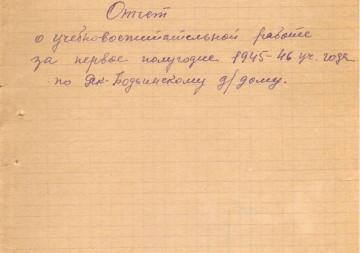 Отчет
о учебновоспитательной работе
за первое полугодие 1945-46 уч. года
по Як-Бодьинскому д/дому.